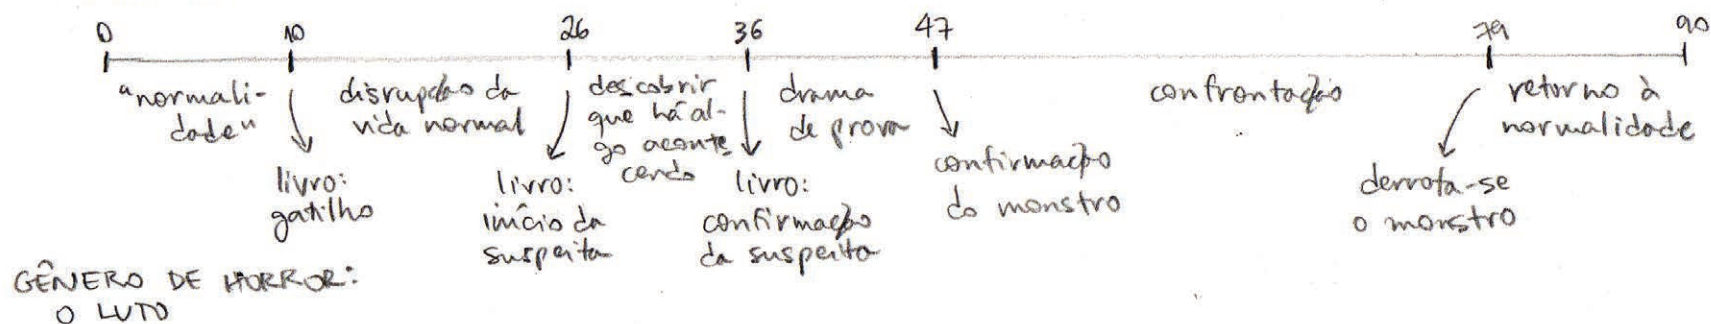 0 10 26 36 47 79 90
"normali-
dade"
disrupção da
vida normal
descobrir
que há al-
go aconte
cendo
drama
de prova
confrontação
retorno à
normalidade
livro:
gatilho
livro:
início da
suspeita
livro:
confirmação
da suspeita
confirmação
do monstro
derrota-se
o monstro
GÊNERO DE HORROR:
O LUTO